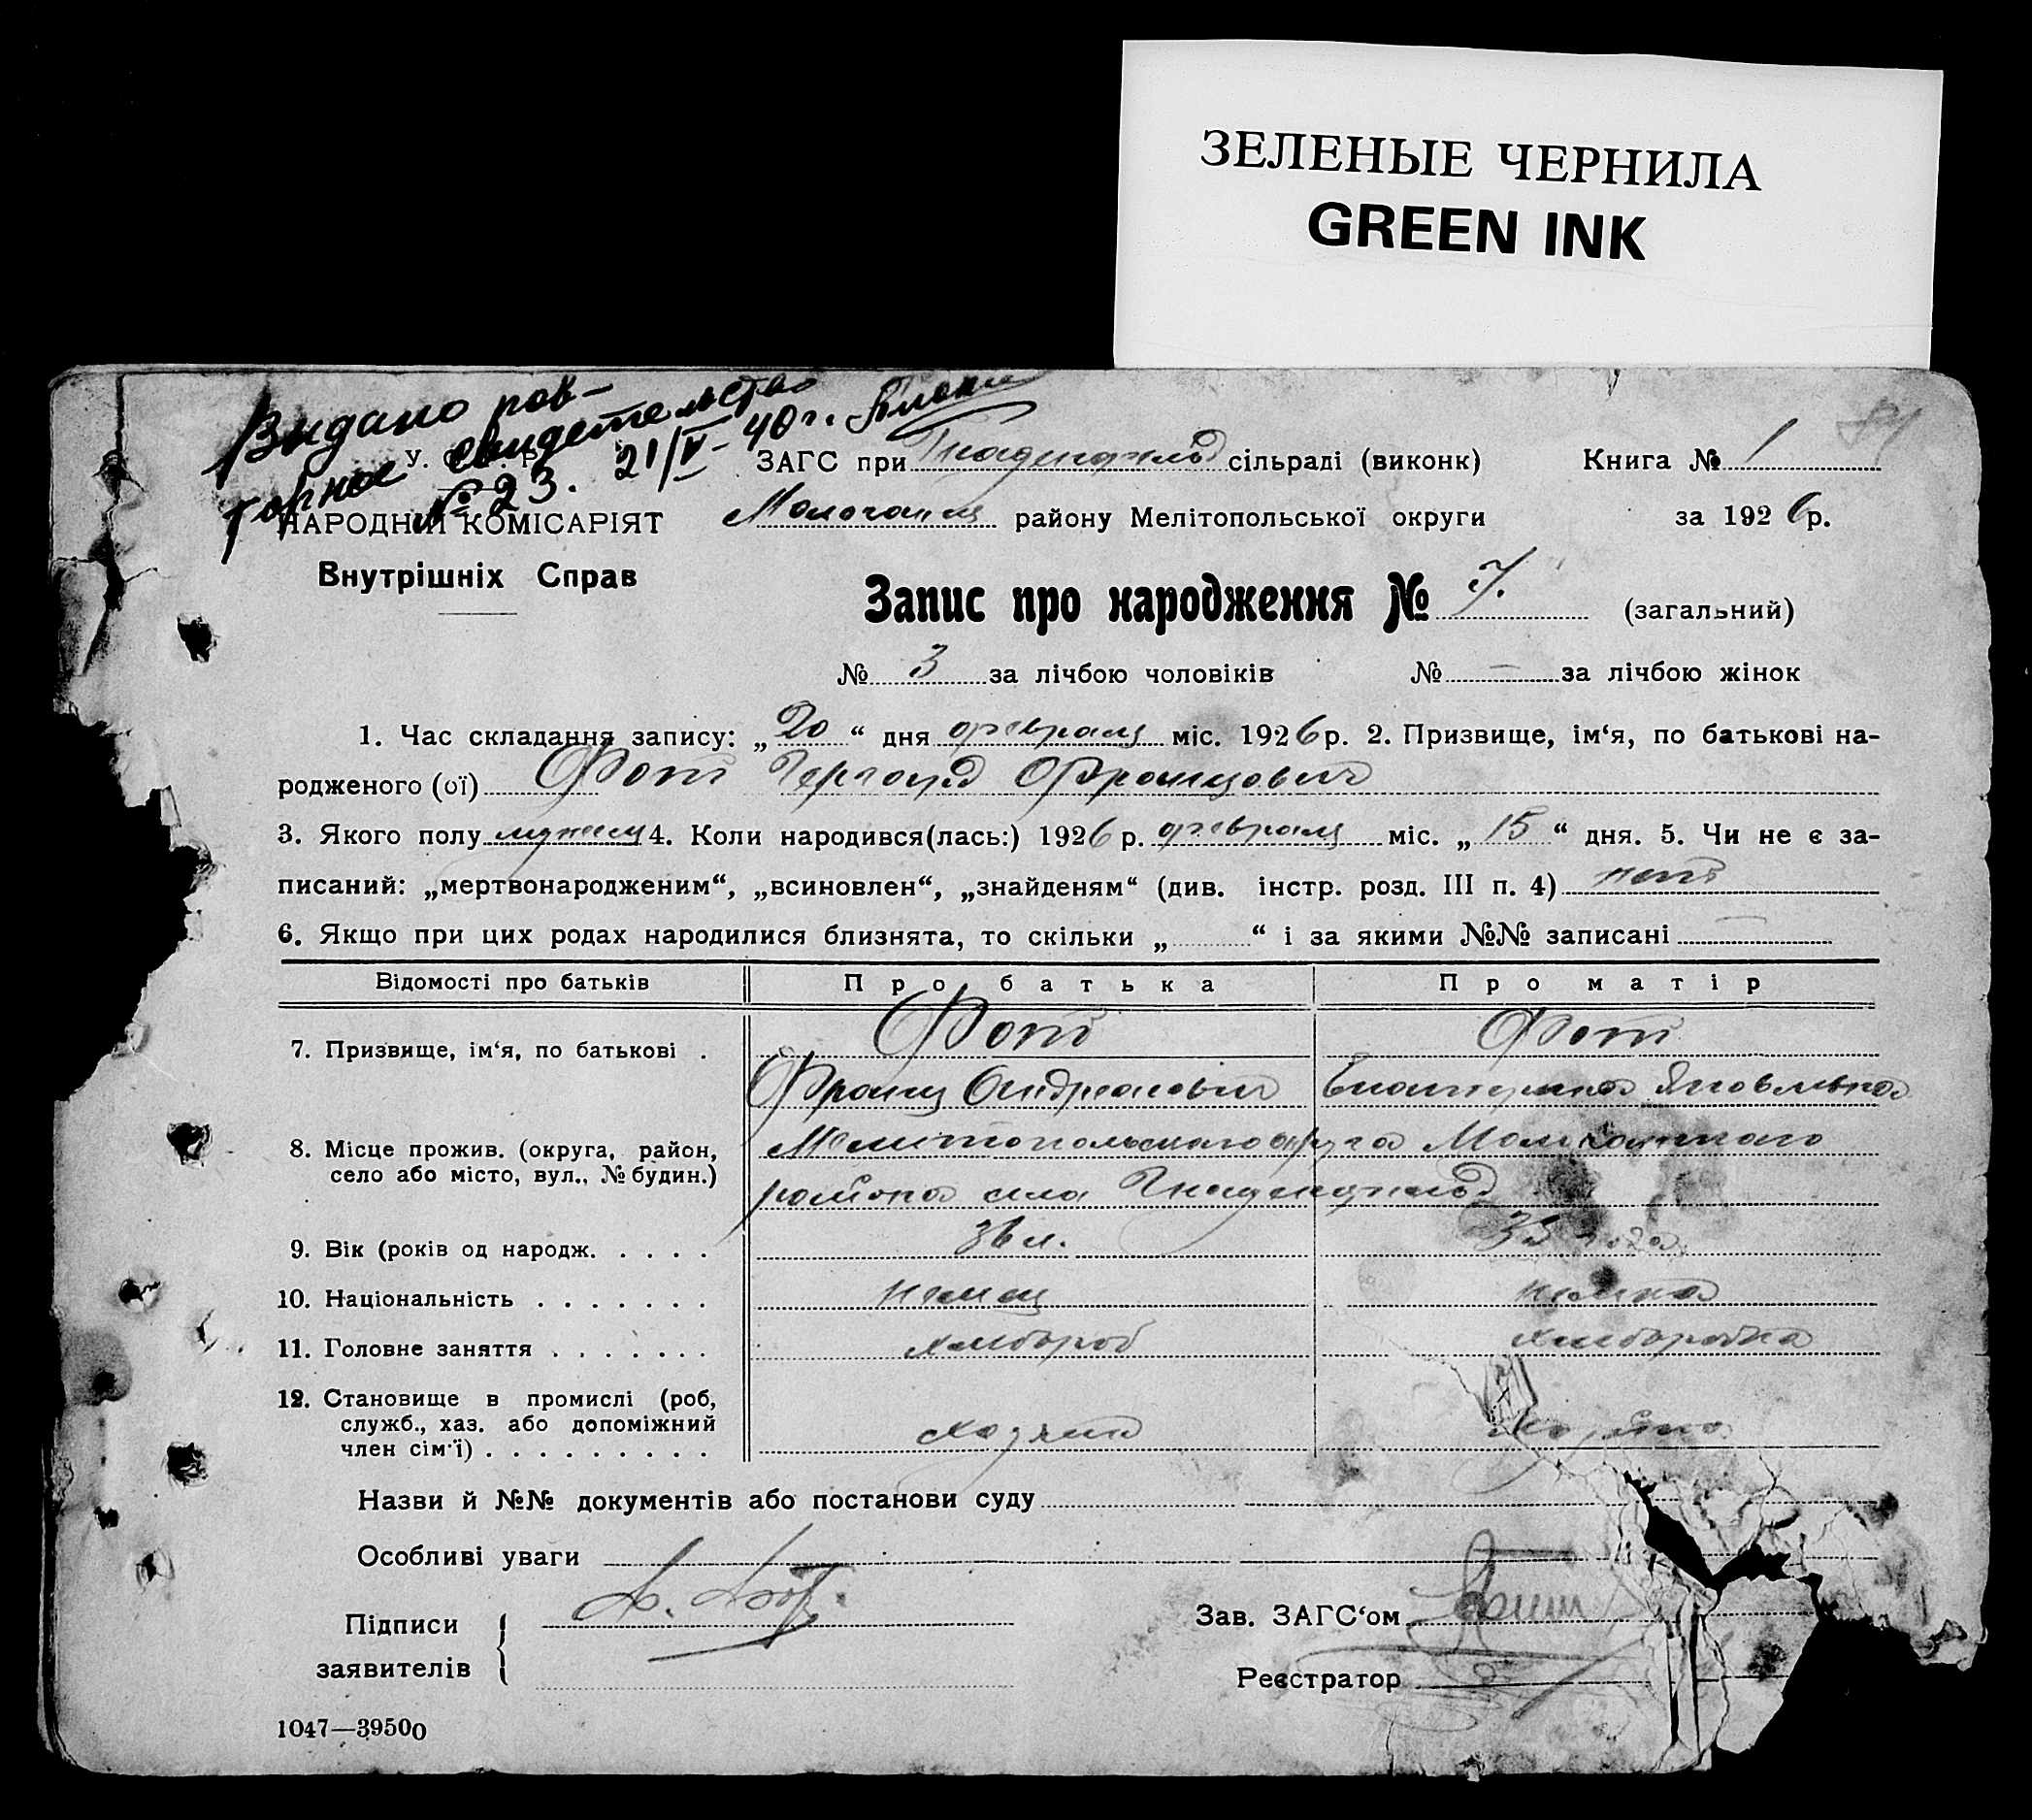 ЗЕЛЕНЫЕ ЧЕРНИЛА
GREEN INK
Видано пов-
торное свидетельство
№ 23. 21/V-40г.
У. Р.
ЗАГС при Гнаденфельд сільраді (виконк) Книга № 1
НАРОДНИЙ КОМІСАРІЯТ
Молочанск району Мелітопольської округи за 1926 р.
Внутрішніх Справ
Запис про народження № 7. (загальний)
№ 3 за лічбою чоловіків № — за лічбою жінок
1. Час складання запису: „20“ дня февраля міс. 1926 р. 2. Призвище, ім‘я, по батькові на-
родженого (ої) Фот Гергард Францович
3. Якого полу мужск 4. Коли народився(лась:) 1926 р. февраля міс. „15“ дня. 5. Чи не є за-
писаний: „мертвонародженим“, „всиновлен“, „знайденям“ (див. інстр. розд. III п. 4) нет
6. Якщо при цих родах народилися близнята, то скільки „ “ і за якими №№ записані —
Відомості про батьків Про батька Про матір
7. Призвище, ім‘я, по батькові . Фот Фот
Франц Андреевич Екатерина Яковлевна
8. Місце прожив. (округа, район, село або місто, вул., № будин.) Мелитопольского округа Молочанского
района села Гнаденфельд
9. Вік (років од народж. . . . . 36 л. 35 года
10. Національність . . . . . . . немец немка
11. Головне заняття . . . . . . . хлебороб хлеборобка
12. Становище в промислі (роб, служб., хаз. або допоміжний член сім‘ї) . . . . . . . . . хозяин
Назви й №№ документів або постанови суду
Особливі уваги
Підписи
заявителів
Зав. ЗАГС‘ом
Реєстратор
1047—39500